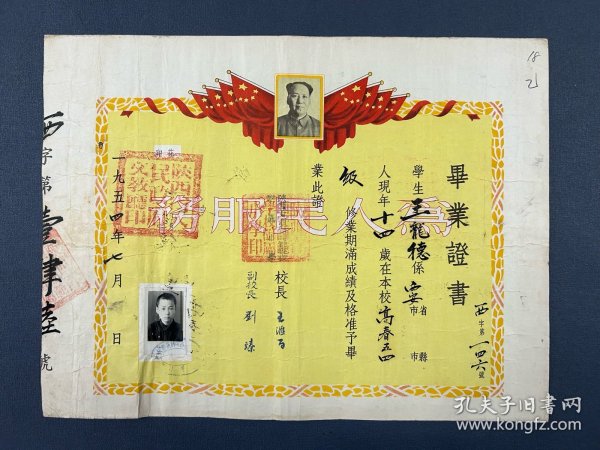 畢業證書
西字第一四六號
學生王龍德係西安省市縣市
人現年十四歲在本校高春五四
級修業期滿成績及格准予畢
業此證
校長
副校長劉
為人民服務
一九五四年七月 日
西字第壹肆陸號
18
孔夫子旧书网
www.kongfz.com